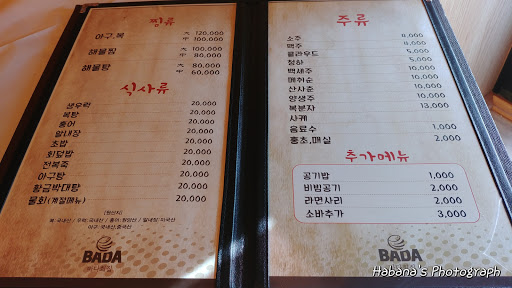 찜류
아구,복 大 120,000
中 100,000
해물찜 大 100,000
中 80,000
해물탕 大 80,000
中 60,000
식사류
생우럭 20,000
복탕 20,000
홍어 20,000
알내장 20,000
초밥 20,000
회덮밥 20,000
전복죽 20,000
아구탕 20,000
황금박대탕 20,000
물회(계절메뉴) 20,000
(원산지)
BADA
주류
소주 4,000
맥주 4,000
클라우드 5,000
청하 5,000
백세주 10,000
매취순 10,000
산사춘 10,000
양생주 10,000
복분자 13,000
사케
음료수 1,000
홍초,매실 2,000
추가메뉴
공기밥 1,000
비빔공기 2,000
라면사리 2,000
소바추가 3,000
BADA
Habana's Photograph